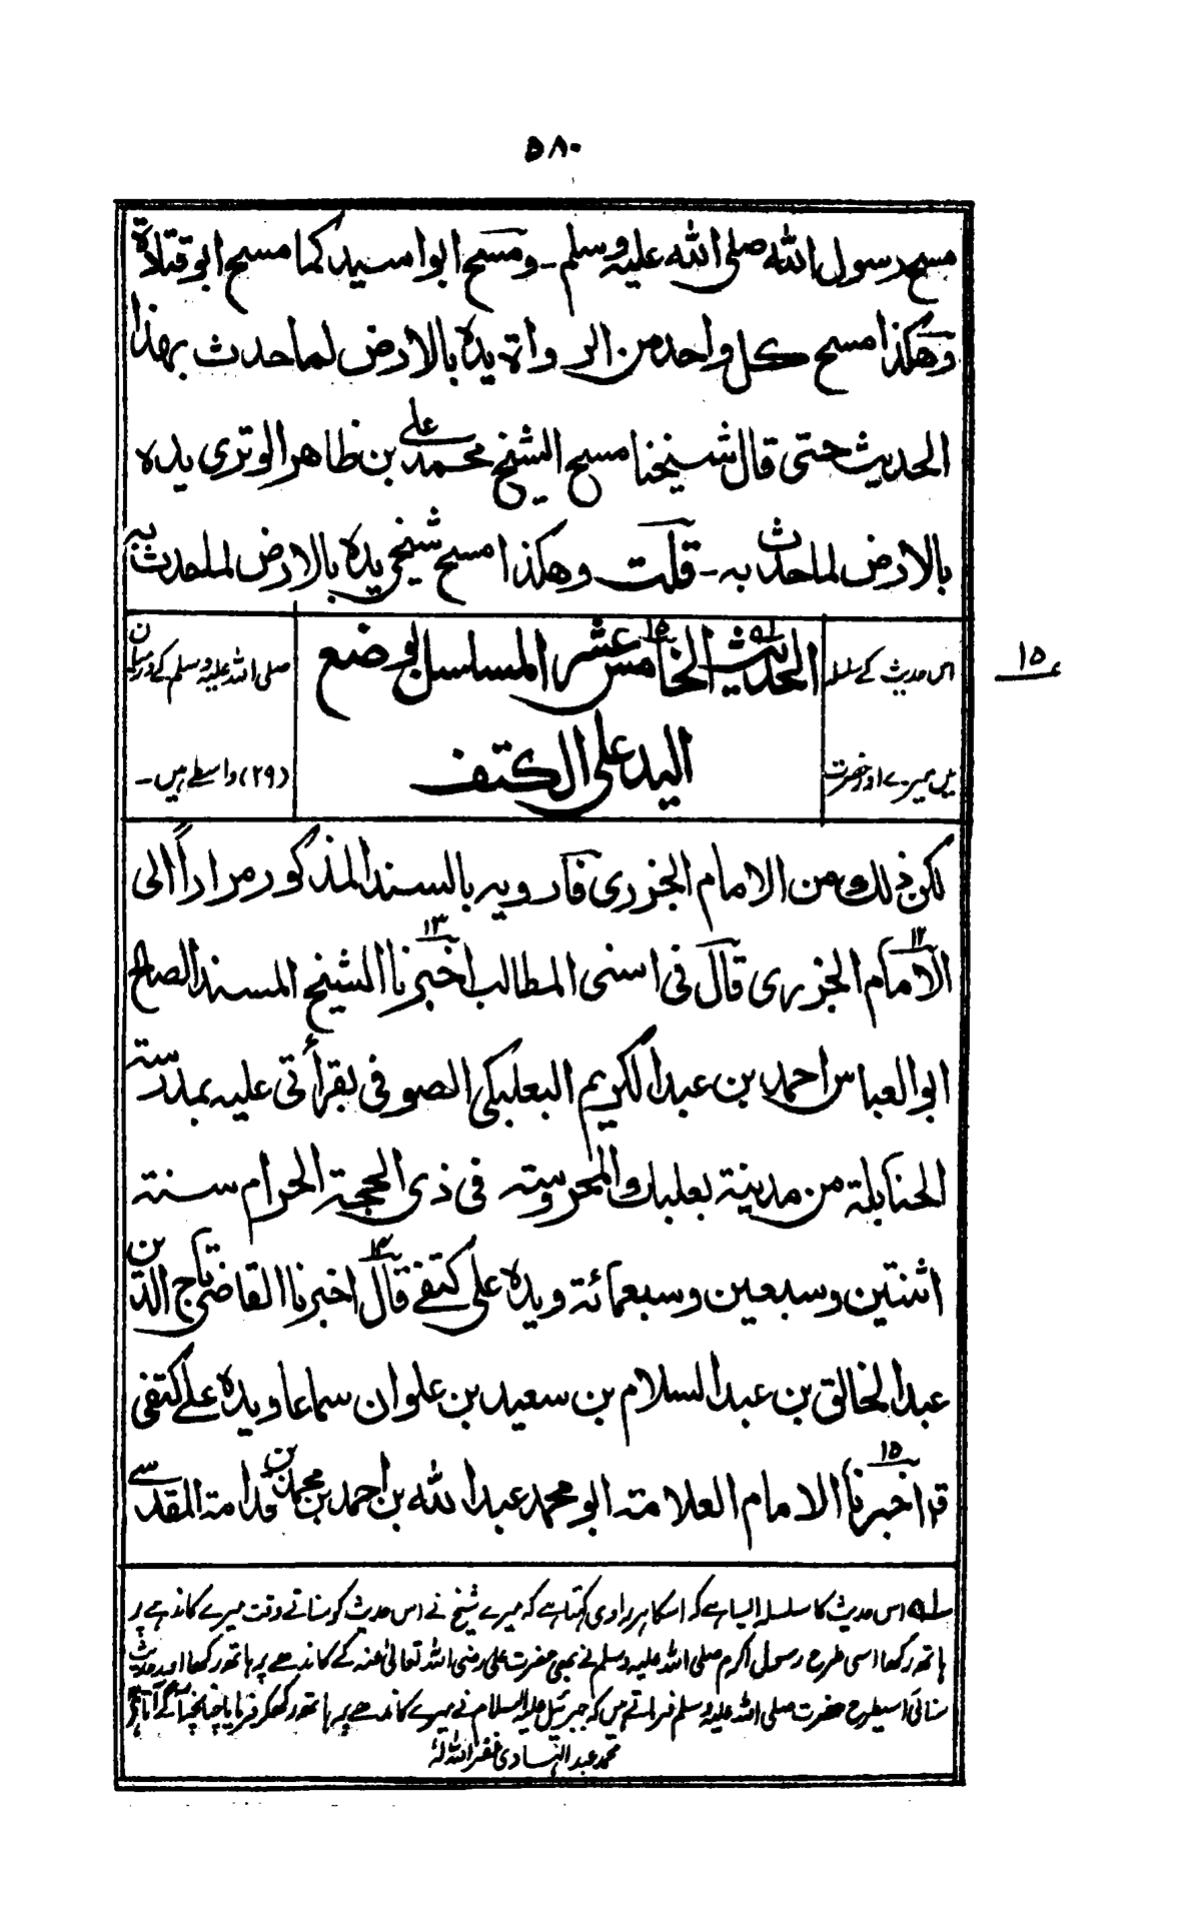 ٥٨٠
مسح رسول الله صلى الله عليه وسلم ـ ومسح ابواسيد كما مسح ابوقتادة
وهكذا مسح كل واحد من الرواة يده بالارض لما حدث بهذا
الحديث حتى قال شيخنا مسح الشيخ محمد على بن ظاهر الوترى يده
بالارض لما حدث به ـ قلت وهكذا مسح شيخى يده بالارض لما حدث به
١٥
اس حدیث کے سلسلہ
میں میرے اور حضرت
الحديث الخامس عشر ١٥ المسلسل بوضع
اليد على الكتف
صلی اللہ علیہ وسلم کے درمیان
(۲۹) واسطے ہیں ـ
لكن ذلك من الامام الجزرى فارويه بالسند المذكور مراراً الى
الامام الجزرى قال فى اسنى المطالب اخبرنا الشيخ المسند الصالح
١٢ ١٣
ابوالعباس احمد بن عبدالكريم البعلبكى الصوفى بقرأتى عليه بمدرسة
الحنابلة من مدينة بعلبك المحروسة فى ذى الحجة الحرام سنة
اثنتين وسبعين وسبعمائة ويده على كتفے قال اخبرنا القاضى تاج الدين
١٤
عبدالخالق بن عبدالسلام بن سعيد بن علوان سماعا ويده علے كتفى
١٥
قال اخبرنا الامام العلامة ابو محمد عبدالله بن احمد بن محمد بن قدامة المقدسے
لہ اس حدیث کا سلسلہ ایسا ہے کہ اسکا ہر راوی کہتا ہے کہ میرے شیخ نے اس حدیث کو سناتے وقت میرے کاندھے پر
ہاتھ رکھا اسی طرح رسول اکرم صلی اللہ علیہ وسلم نے بھی حضرت علی رضی اللہ تعالیٰ عنہ کے کاندھے پر ہاتھ رکھا اور حدیث
سنائی اسیطرح حضرت صلی اللہ علیہ وسلم فرماتے ہیں کہ جبرئیل علیہ السلام نے میرے کاندھے پر ہاتھ رکھکر فرمایا چنانچہ آگے آتا ہے
محمد عبدالہادی غفر اللہ لہٗ